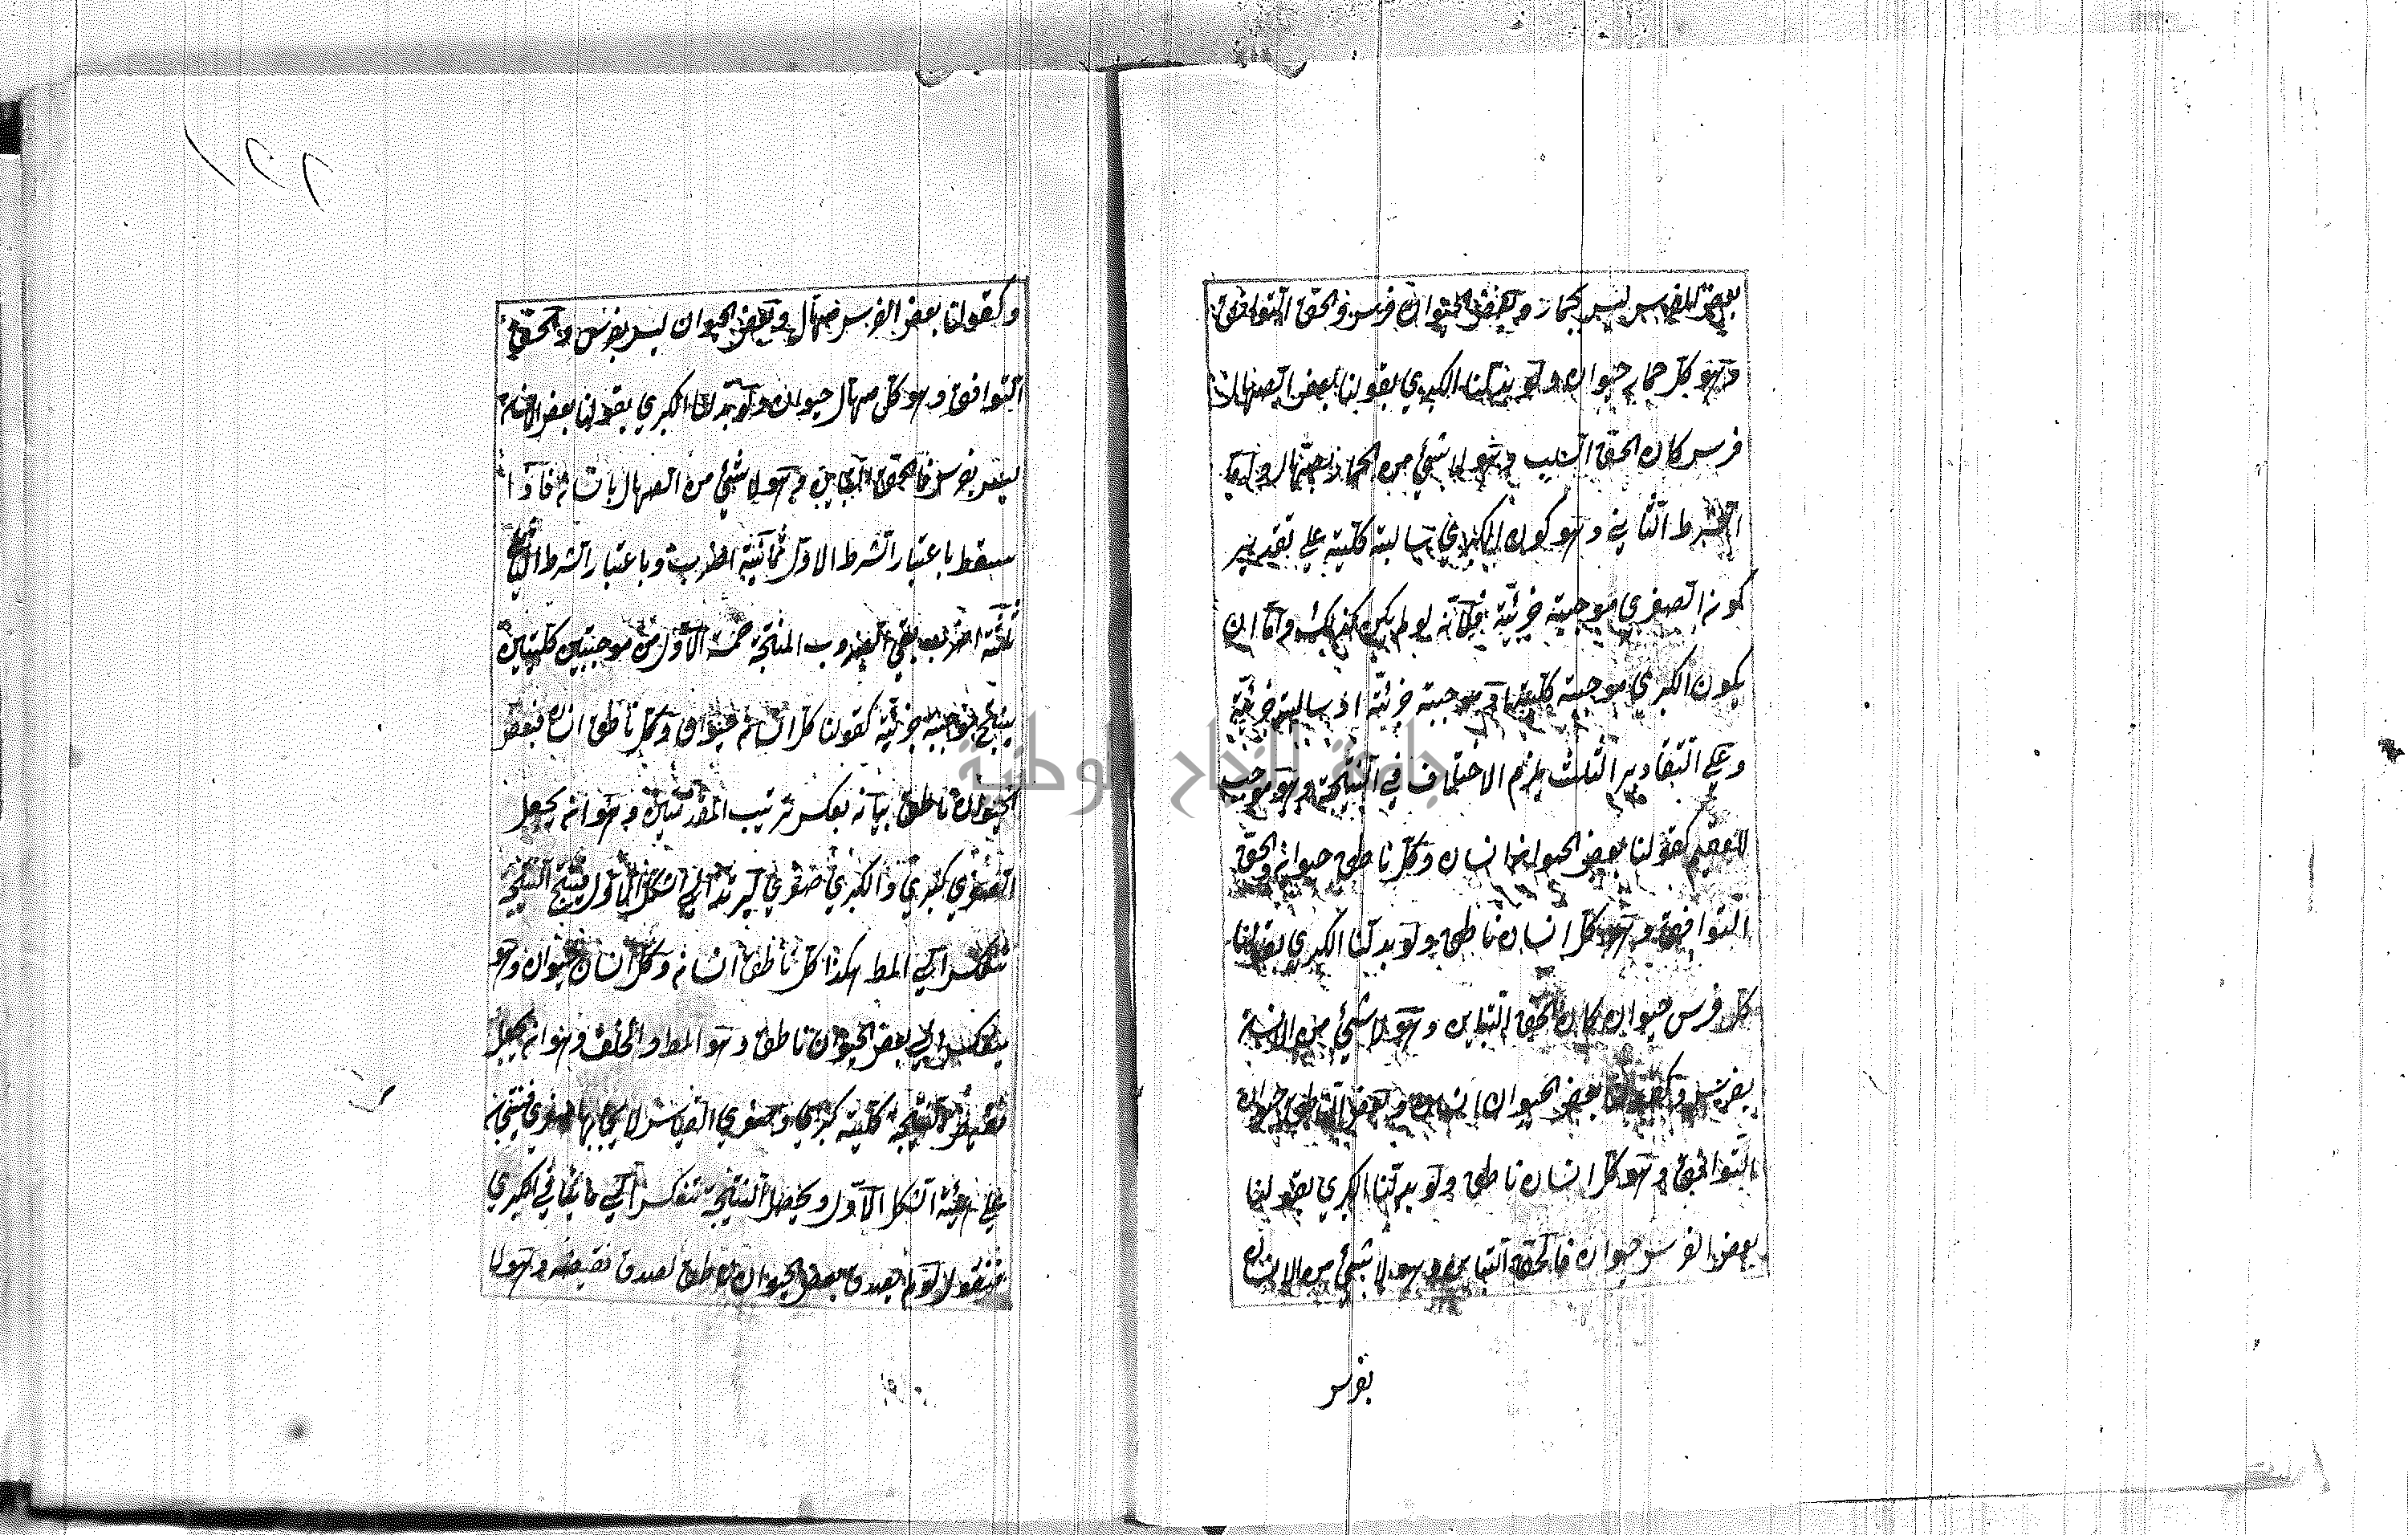 بعض الفرس ليس بحمار وبعض الحيوان فرس والحق التوافق
وهو كل حمار حيوان ولو بدلنا الكبرى بقولنا بعض الصهال
فرس كان الحق السلب وهو لا شئ من الحمار بصهال واما
الشرط الثاني وهو كون الكبرى سالبة كلية على تقدير
كون الصغرى موجبة جزئية فلانه لو لم يكن كذلك واما ان
يكون الكبرى موجبة كلية او موجبة جزئية او سالبة جزئية
وعلى التقادير الثلث يلزم الاختلاف في النتيجة وهو موجب
للعقم كقولنا بعض الحيوان انسان وكل ناطق حيوان والحق
التوافق وهو كل انسان ناطق ولو بدلنا الكبرى بقولنا
كل فرس حيوان كان الحق التباين وهو لا شئ من الانسان
بفرس وكقولنا بعض الحيوان انسان وبعض الناطق حيوان
التوافق وهو كل انسان ناطق ولو بدلنا الكبرى بقولنا
بعض الفرس حيوان فالحق التباين وهو لا شئ من الانسان
بفرس
وكقولنا بعض الفرس صهال وبعض الحيوان ليس بفرس والحق
التوافق وهو كل صهال حيوان ولو بدلنا الكبرى بقولنا بعض الانسان
ليس بفرس فالحق التباين وهو لا شئ من الصهال بانسان فاذا
سقط باعتبار الشرط الاول ثمانية اضرب وباعتبار الشرط الثاني
ثلثة اضرب بقي الضروب المنتجة خمسة الاول من موجبتين كليتين
ينتج موجبة جزئية كقولنا كل انسان حيوان وكل ناطق انسان فبعض
الحيوان ناطق بيانه بعكس ترتيب المقدمتين وهو انه يجعل
الصغرى كبرى والكبرى صغرى ليرتد الى الشكل الاول فينتج النتيجة
تنعكس الى المط هكذا كل ناطق انسان وكل انسان حيوان وهو
ينعكس الى بعض الحيوان ناطق وهو المط والخلف وهو انه يجعل
نقيض النتيجة كلية كبرى وصغرى القياس لايجابها صغرى فينتج
على هيئة الشكل الاول ويحصل النتيجة تنعكس الى ما ينافي الكبرى
فنقول لو لم يصدق بعض الحيوان ناطق لصدق نقيضه وهو لا
جامعة النجاح الوطنية